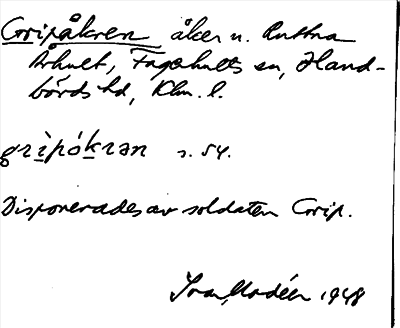 Gripåkren åker u. Ruttna
Århult, Fagerhults sn, Hand-
börds hd, Klm. l.
grìpókran s. 54.
Disponerades av soldaten Grip.
Ivar Modéer 1948